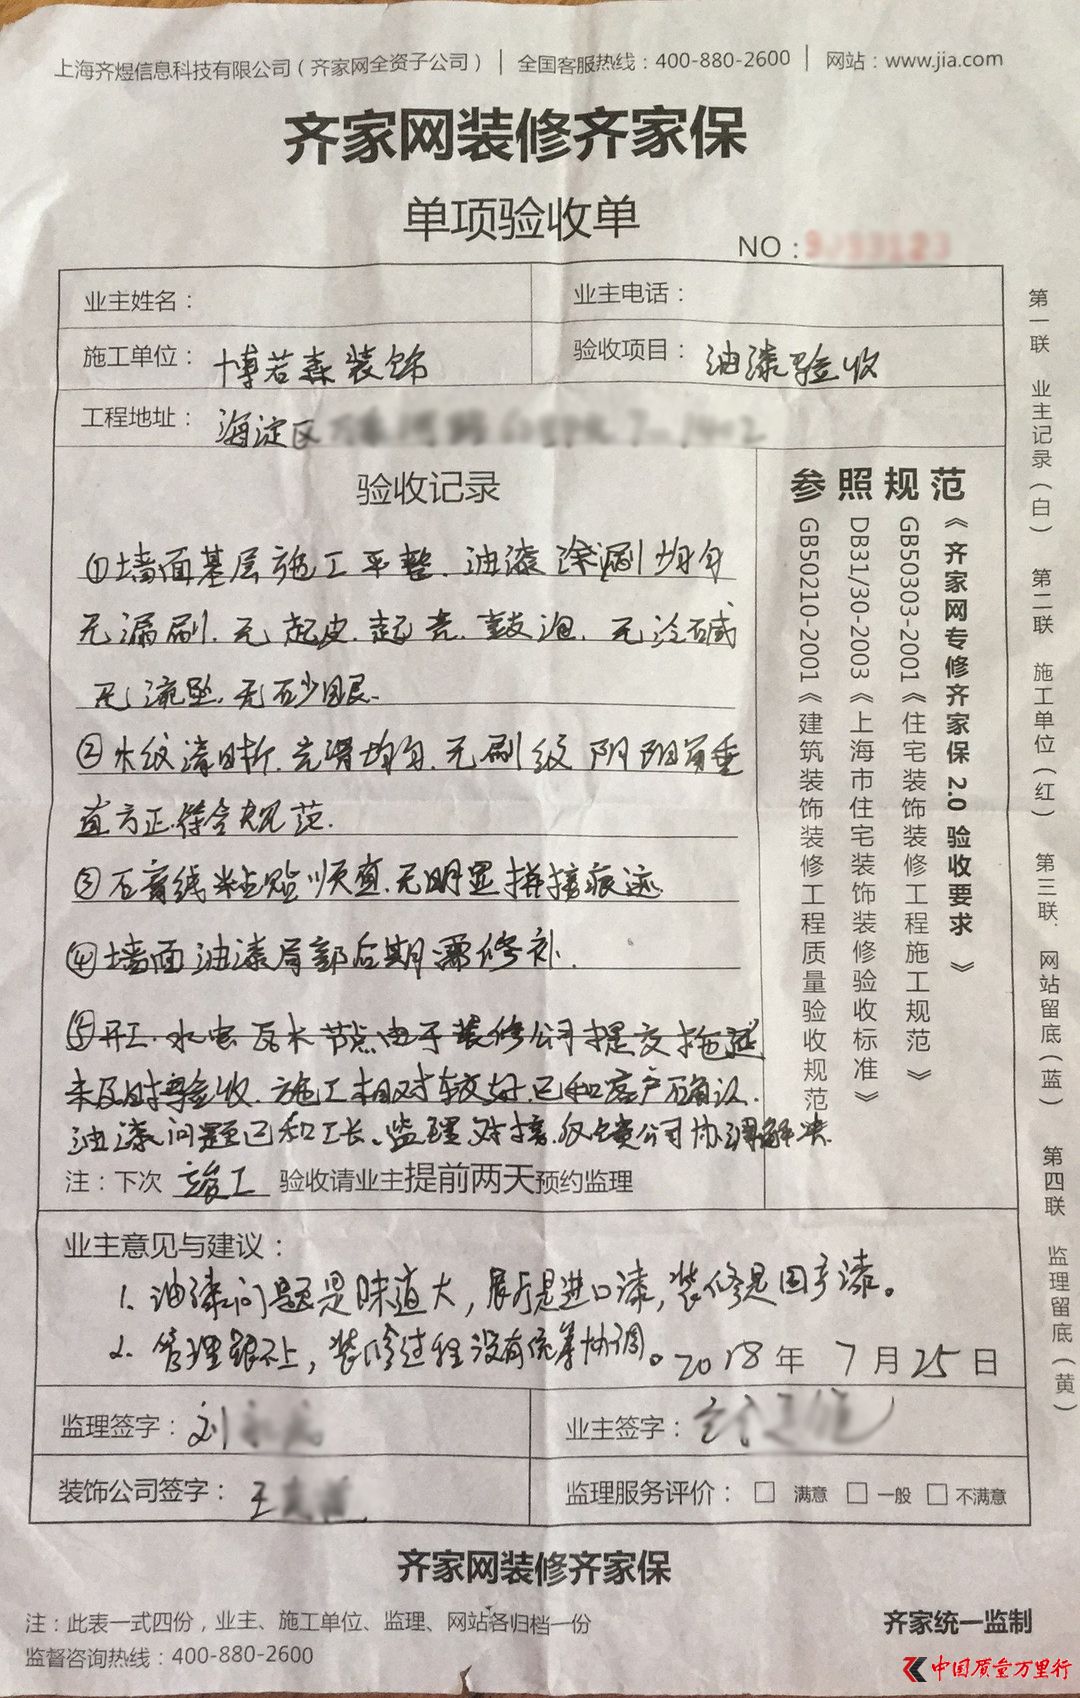 上海齐煜信息科技有限公司（齐家网全资子公司）｜全国客服热线：400-880-2600｜网站：www.jia.com
齐家网装修齐家保
单项验收单
NO：
业主姓名：
业主电话：
施工单位：博若森装饰
验收项目：油漆验收
工程地址：海淀区
验收记录
①墙面基层施工平整.油漆涂刷均匀
无漏刷.无起皮.起壳.鼓泡.无泛碱
无流坠.无砂眼.
②木纹清晰.光滑均匀.无刷纹 阴阳角垂
直方正.符合规范.
③石膏线粘贴顺直.无明显拼接痕迹
④墙面油漆局部后期需修补.
⑤开工.水电瓦木节点由于装修公司提交拖延
未及时验收.施工相对较好.已和客户确认.
油漆问题已和工长、监理对接.仅负责公司协调解决.
注：下次 竣工 验收请业主提前两天预约监理
参照规范
《齐家网专修齐家保 2.0 验收要求》
GB50303-2001《住宅装饰装修工程施工规范》
DB31/30-2003《上海市住宅装饰装修验收标准》
GB50210-2001《建筑装饰装修工程质量验收规范
业主意见与建议：
1. 油漆问题是味道大，展厅是进口漆，装修是国产漆。
2. 管理跟不上，装修过程没有统筹协调。
2018年 7月25日
监理签字：刘
业主签字：
装饰公司签字：王
监理服务评价：□ 满意 □ 一般 □ 不满意
第一联 业主记录（白） 第二联 施工单位（红） 第三联.网站留底（蓝） 第四联 监理留底（黄）
齐家网装修齐家保
注：此表一式四份，业主、施工单位、监理、网站各归档一份
齐家统一监制
监督咨询热线：400-880-2600
中国质量万里行